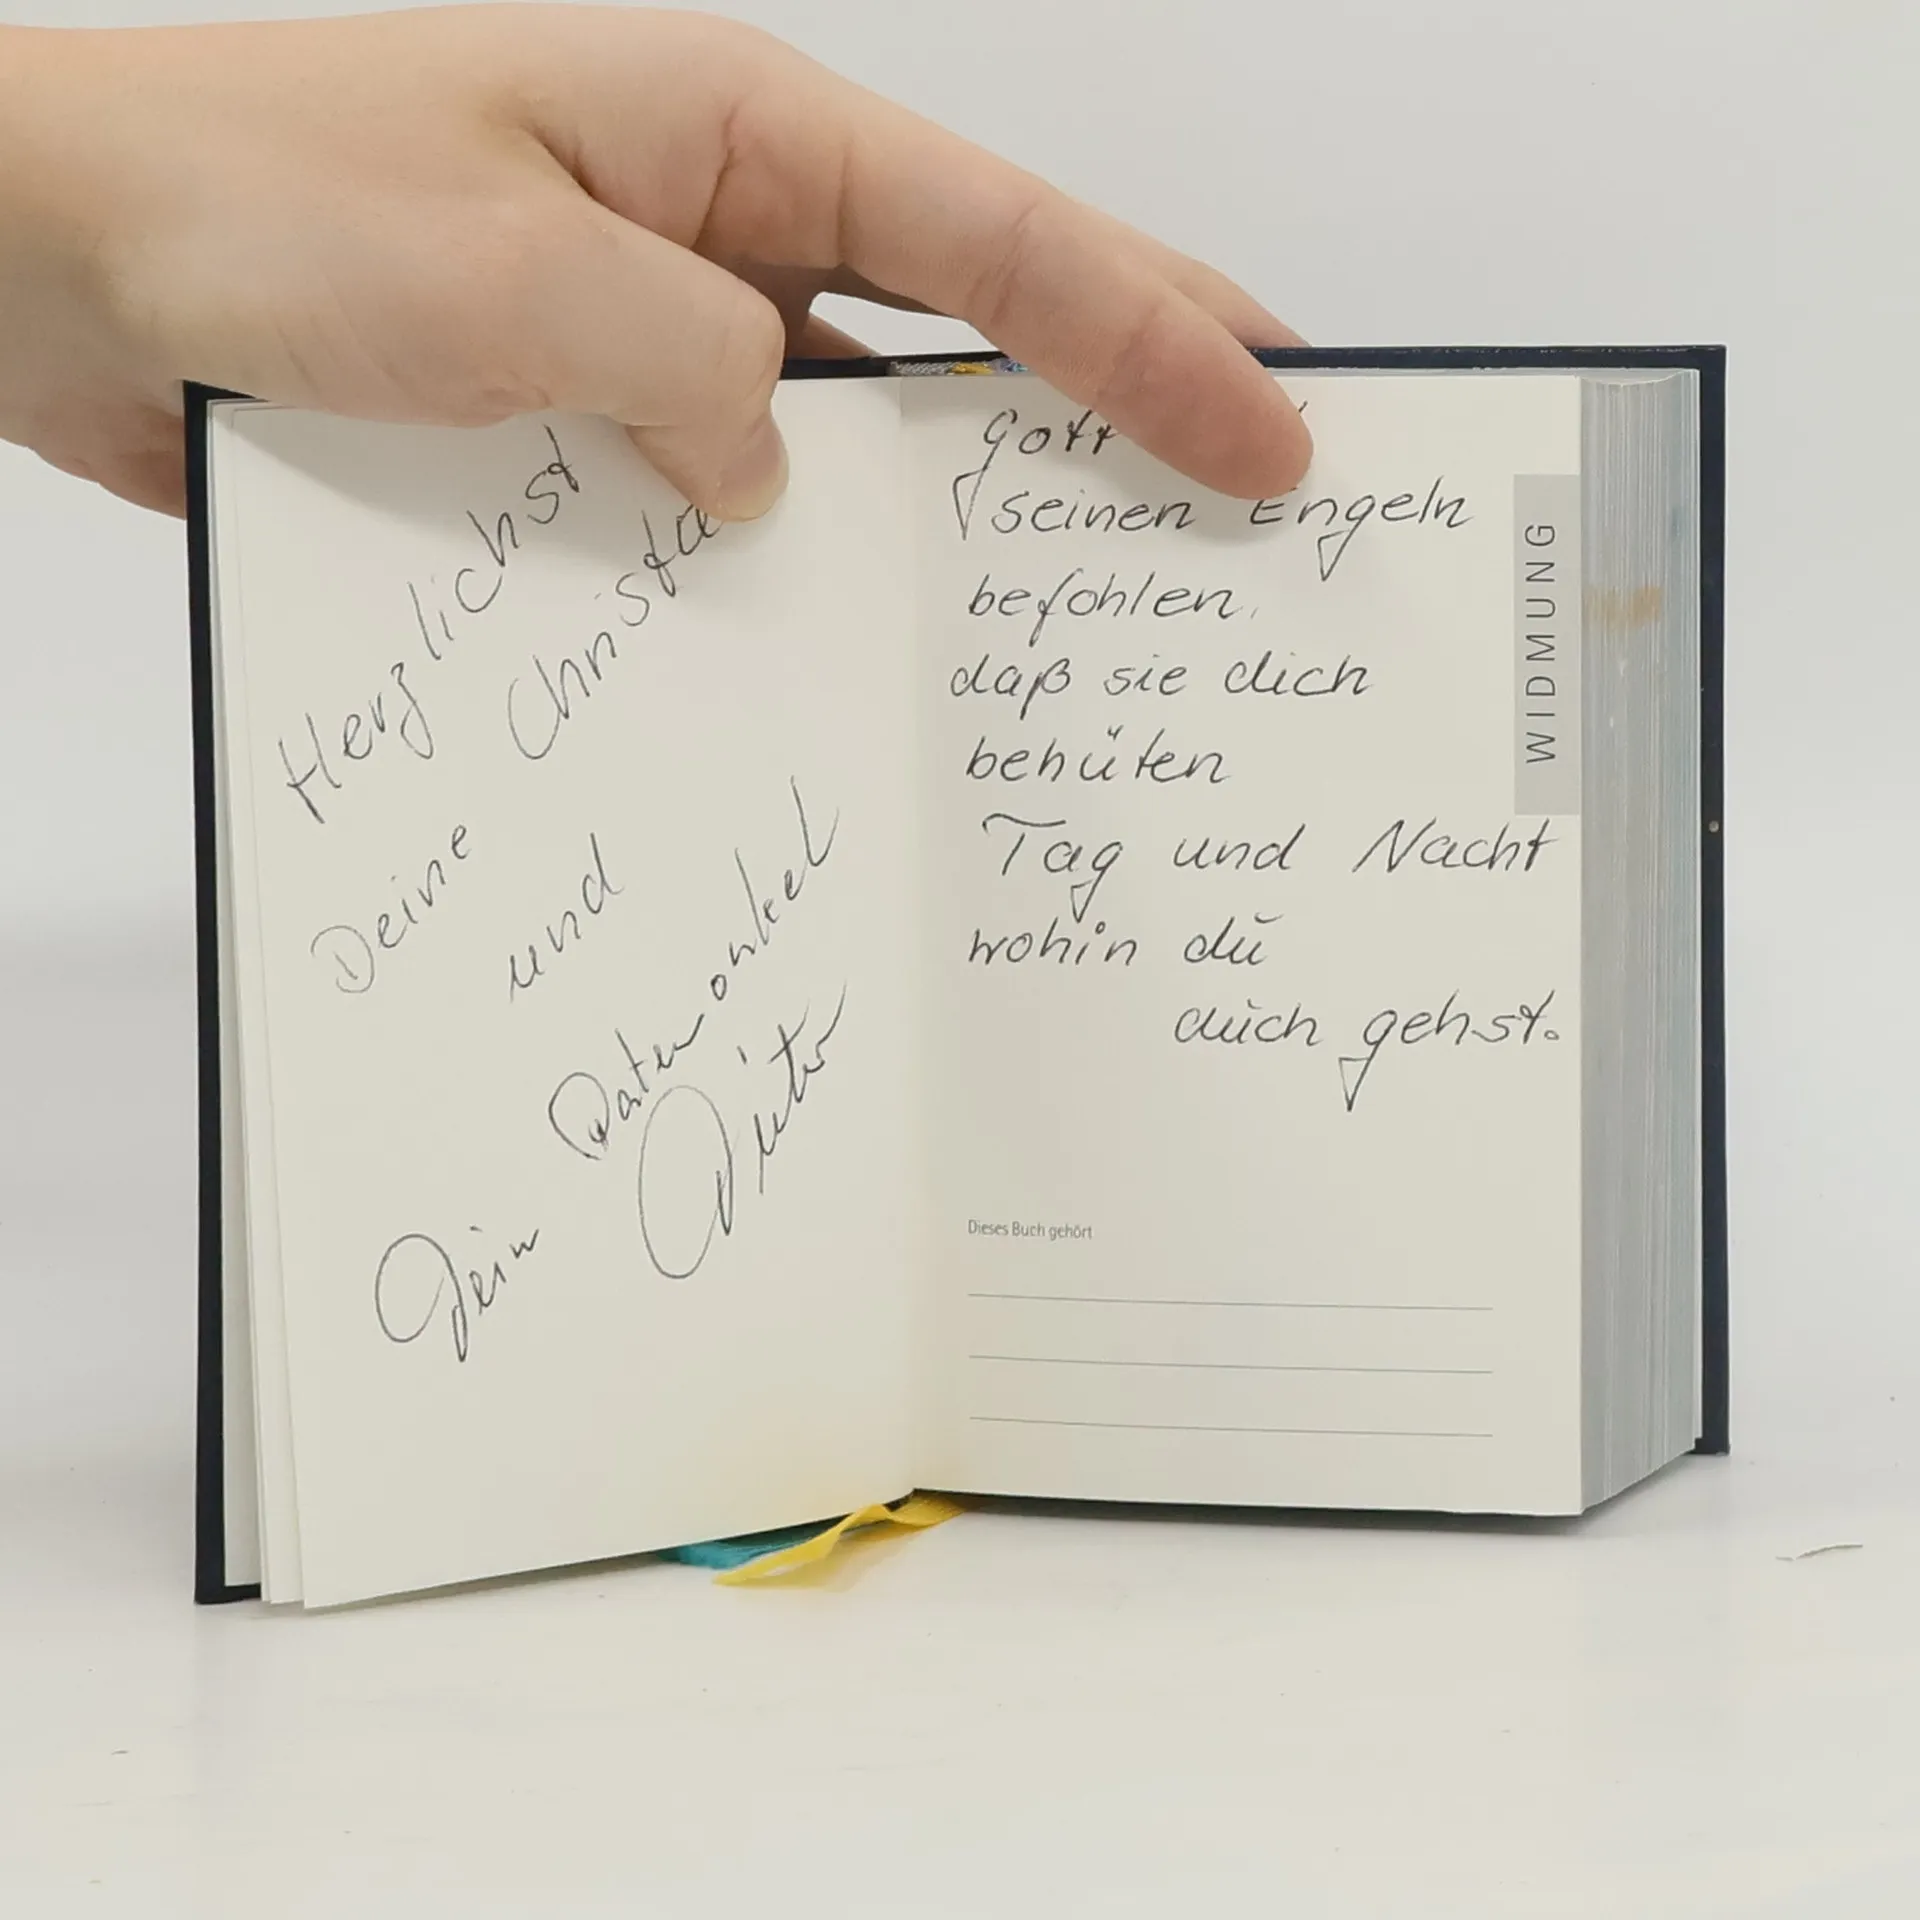 Herzlichst
Deine Christa
und
Dein Patenonkel
Gott
seinen Engeln
befohlen,
daß sie dich
behüten
Tag und Nacht
wohin du
auch gehst.
WIDMUNG
Dieses Buch gehört